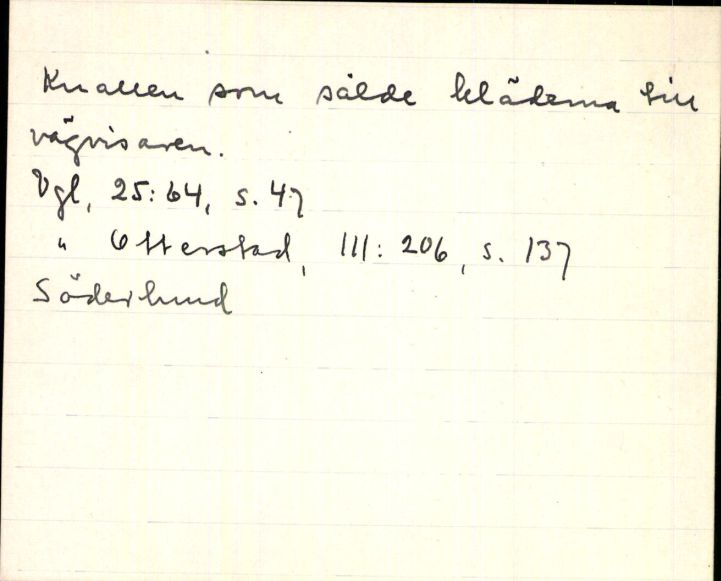 Knallen som sålde kläderna till
vägvisaren.
Vgl, 25:64, s. 47
" Otterstad, III: 206, s. 137
Söderlund